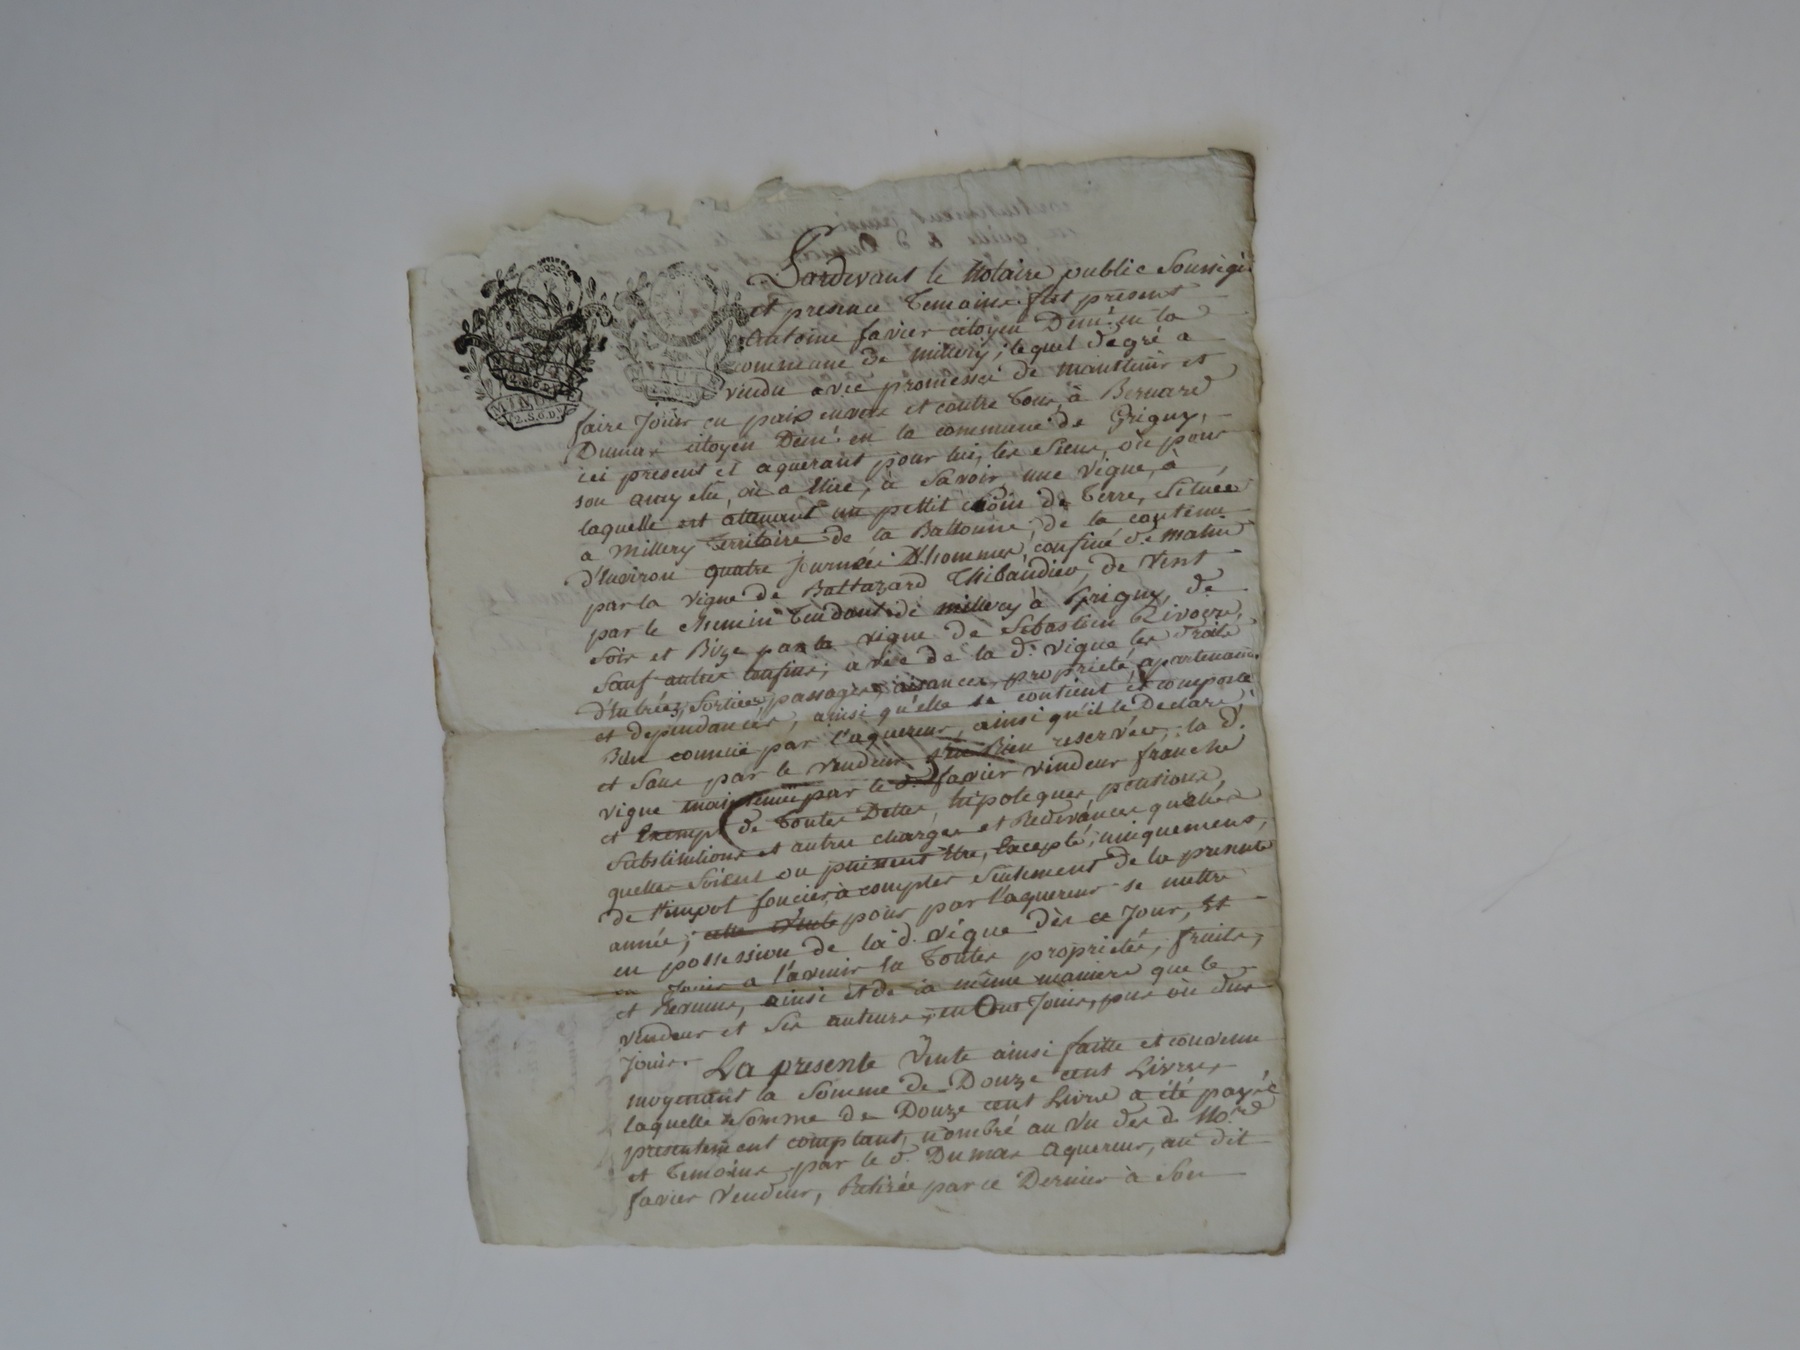 Pardevant le Notaire public Soussigné
et presence Temoins fut present
Antoine favier citoyen Demt. en la
commune de millery; lequel degré a
vendu avec promesse de maintenir et
faire Jouir en paix envers et contre Tous, à Bernard
Dumas citoyen Demt. en la commune de Grigny,
ici present et aquerant pour lui, les Siens, où pour
son amy élu, où a élire, à Savoir une vigne, à
laquelle est atenant un pettit coin de Terre, Située
a Millery Territoire de la Ballonne, de la contenue
d'Environ quatre Journées D'hommes, confiné de matin
par la vigne de Baltazard Thibaudier, de Vent
par le chemin Tendant de millery à Grigny, de
Soir et Bize par la vigne de Sebastien Rivoire,
Sauf autres confins; avec de la d. vigne les droits
d'Entrées, Sorties, passages, aisances, propriété, apartenances
et dependances, ainsi qu'elle se contient et comporte
Bien connue par l'aquereur, ainsi qu'il le Declare,
et Sans par le vendeur Bien reservée, la d.
vigne maintenue par le d. favier vendeur franche
et Exempt de Toutes Dettes, hipoteques, pensions,
Substitutions et autres charges et Redevances quelles
quelles Soient ou puissent être, Excepté, uniquement,
de l'impot foncier, à compter Seulement de la presente
année; cette Vente pour par l'aquereur se mettre
en possession de la d. vigne dès ce Jour, Et
en Jouir a l'avenir en Toutes proprietés, fruits,
et Revenus, ainsi et de la même maniere que le
vendeur et Ses auteurs, en Ont Joui, pus où dus
Jouir.
La presente Vente ainsi faitte et convenue
moyenant la Somme de Douze cent Livres,
laquelle Somme de Douze cent Livres a été payée
presentement comptant, nombré au vu des d. Nore.
et Temoins par le d. Dumas aquereur, au dit
favier Vendeur, Retirée par ce Dernier à Son
MINUTE
2.S.6.D.
MINUTE
2.S.6.D.